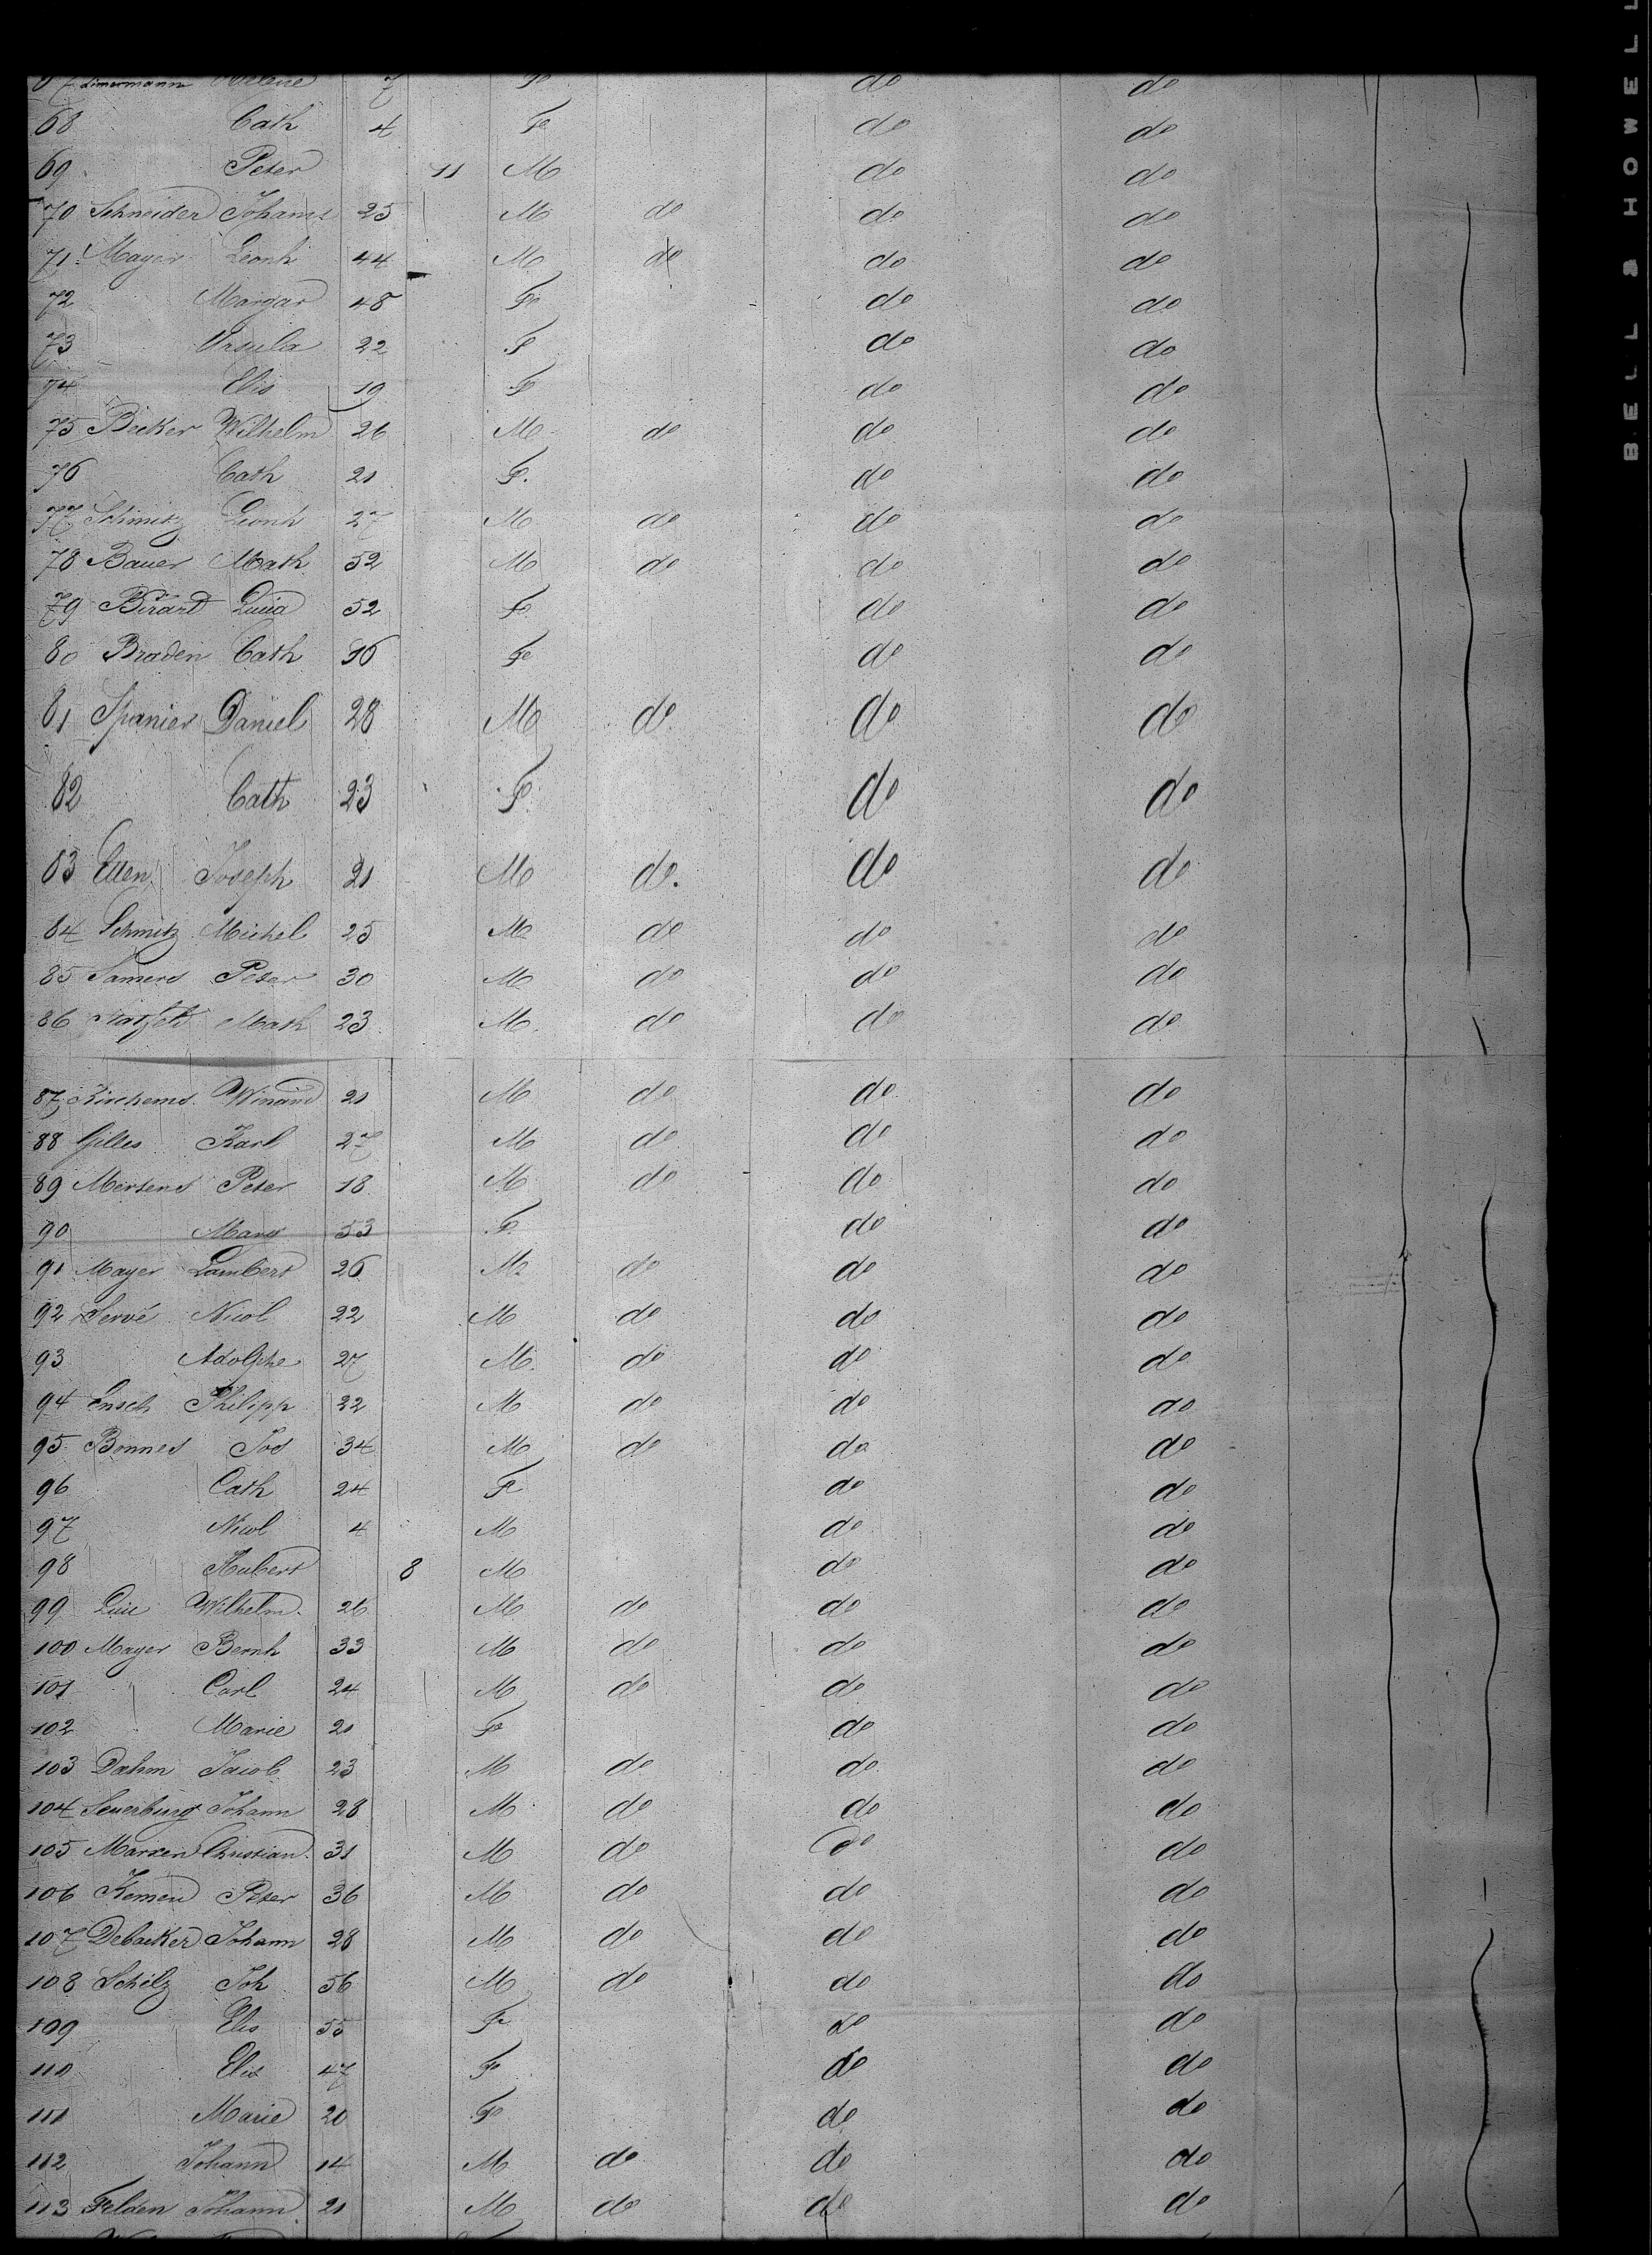 67 Zimermann Helene 7 Fe do do
68 Cath 4 Fe do do
69 Peter 11 M do do
70 Schneider Johann 25 M do do do
71 Mayer Leonh 44 M do do do
72 Margar 48 Fe do do
73 Ursula 22 F do do
74 Elis 19 F do do
75 Becker Wilhelm 26 M do do do
76 Cath 21 F. do do
77 Schmitz Leonh 27 M do do do
78 Bauer Math 52 M do do do
79 Birard Lucia 52 F do do
80 Braden Cath 36 Fe do do
81 Spanier Daniel 28 M do do do
82 Cath 23 F do do
83 Etten Joseph 21 M do. do do
84 Schmitz Michel 25 M do do do
85 Samers Peter 30 M do do do
86 Math 23 M do do do
87 Winand 21 M do do do
88 Gilles Karl 27 M do do do
89 Mertens Peter 18 M do do do
90 Marg 53 F. do do
91 Mayer Lambert 26 M do do do
92 Servé Nicol 22 M do do do
93 Adolphe 27 M. do do do
94 Ensch Philipp 22 M do do do
95 Bonnes Jos 34 M do do do
96 Cath 24 F do do
97 Nicol 4 M do do
98 Hubert 8 M do do
99 Wilhelm. 26 M do do do
100 Mayer Bernh 33 M do do do
101 Carl 24 M do do do
102 Marie 21 Fe do do
103 Dahm Jacob 23 M do do do
104 Seuerburg Johann 28 M do do do
105 Marxen Christian. 31 M do do do
106 Kemen Peter 36 M do do do
107 Debacker Johann 28 M do do do
108 Schilz Joh 56 M do do do
109 Elis 55 Fe do do
110 Elis 47 Fe do do
111 Marie 20 Fe do do
112 Johann 14 M do do do
113 Felden Johann 21 M do do do
BELL & HOWELL